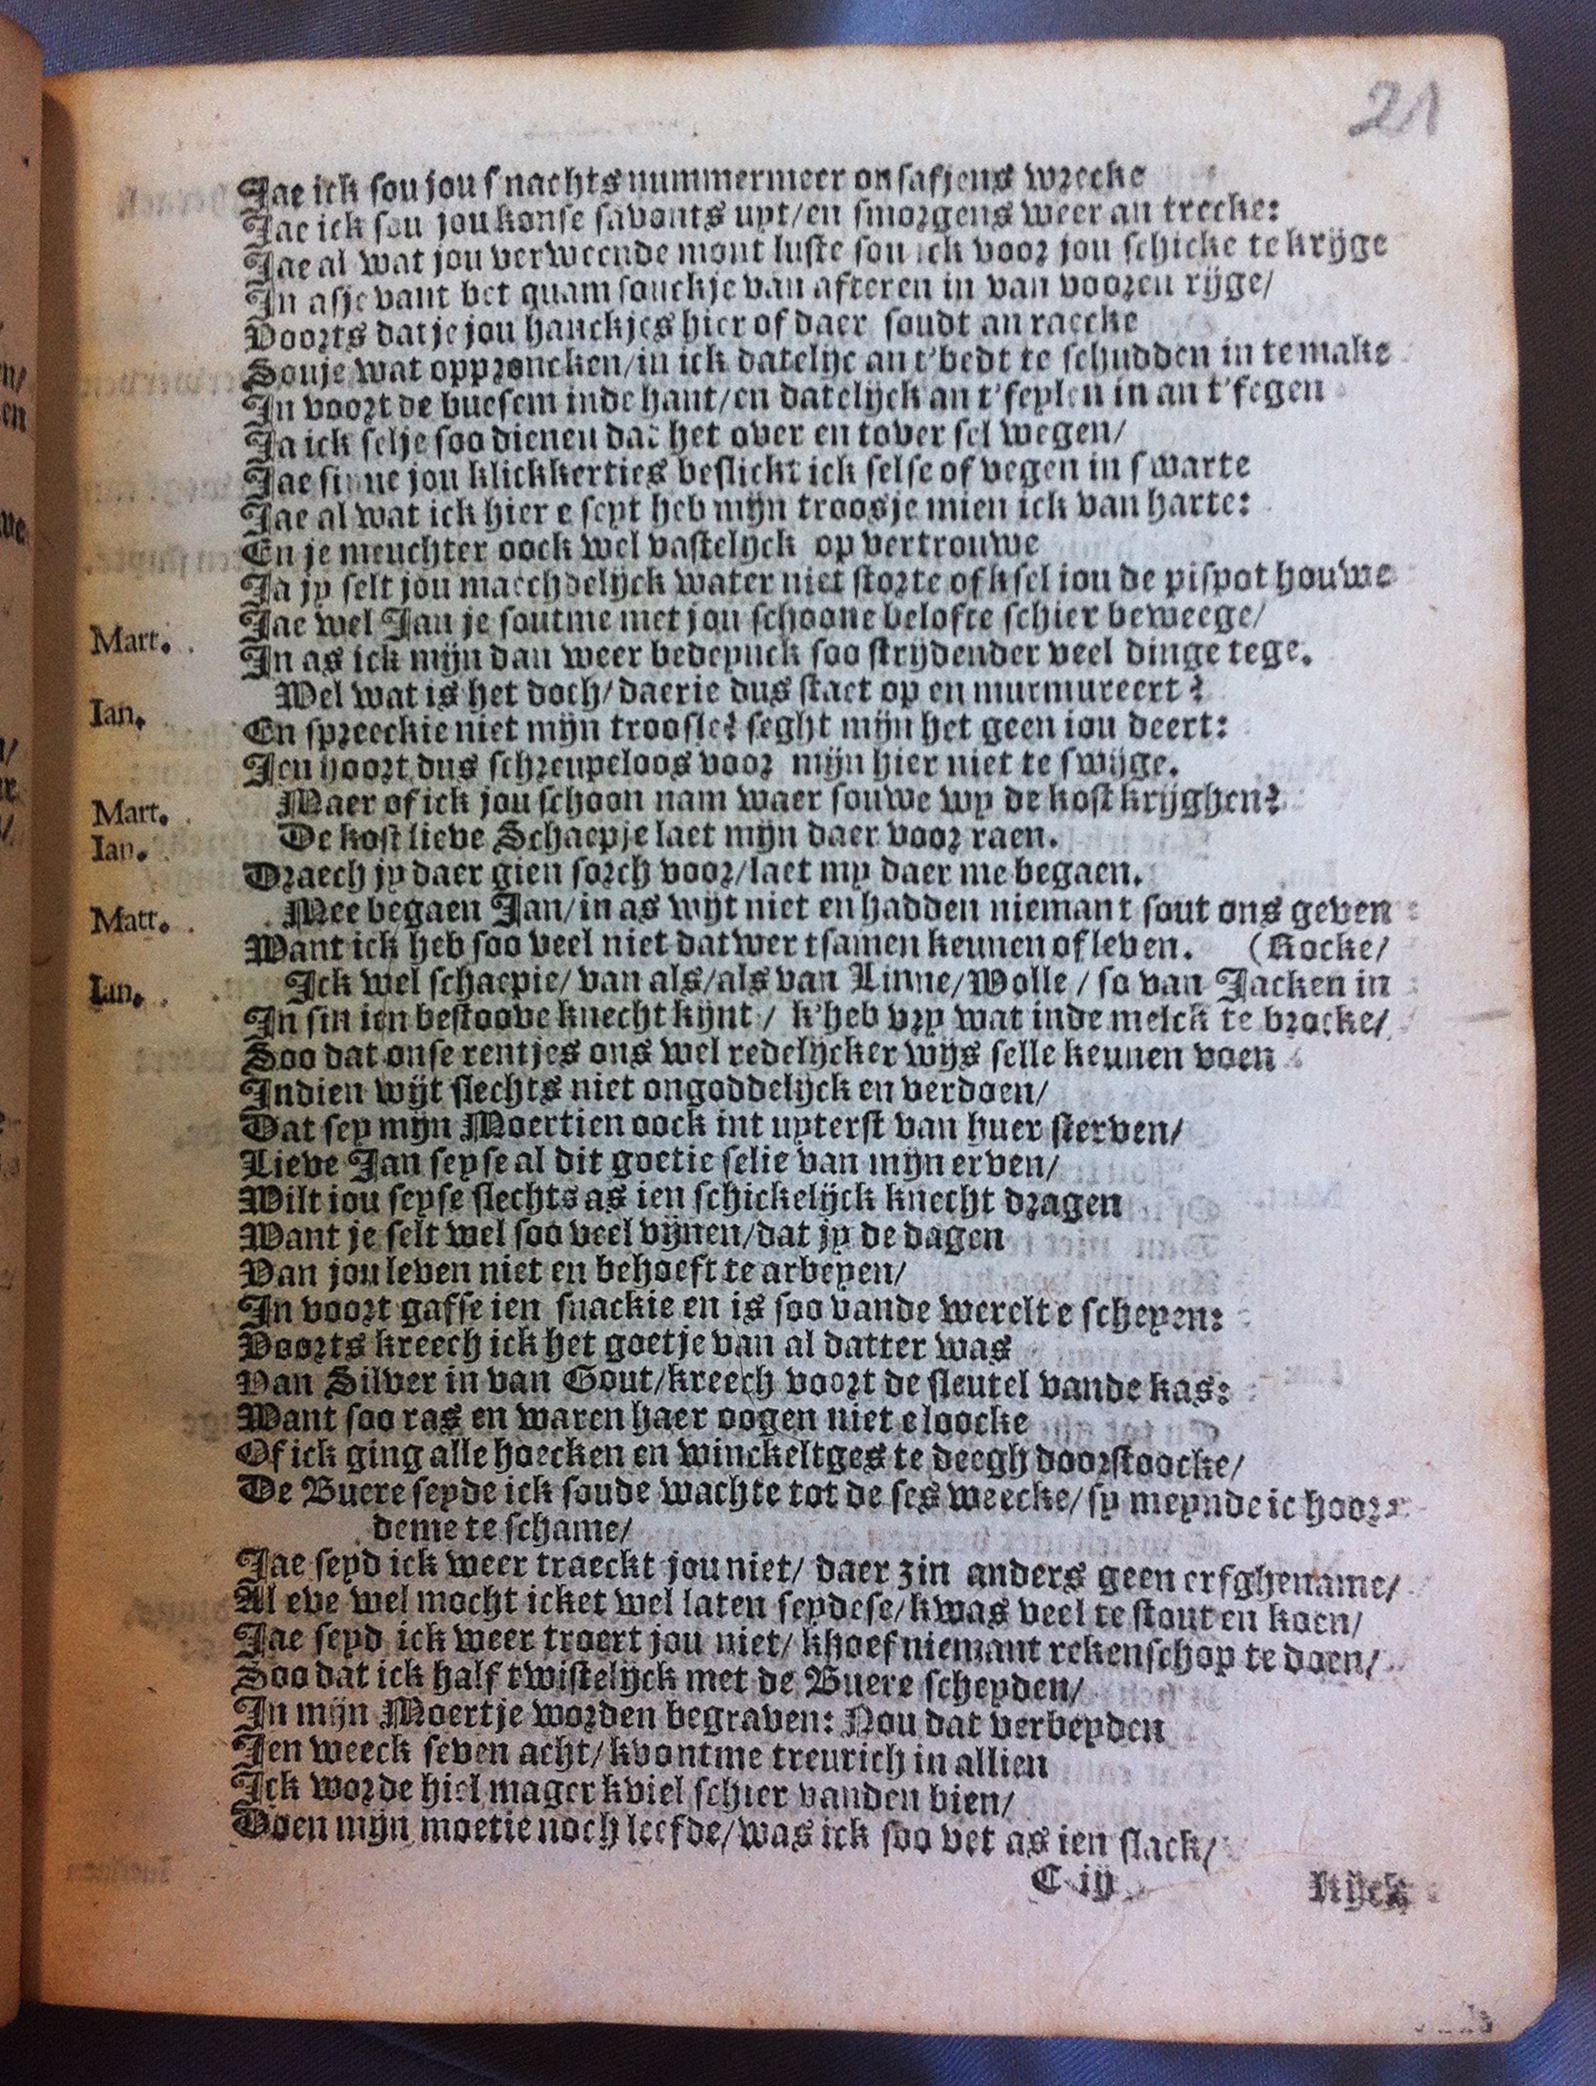 21
Jae ick sou jou s'nachts nummermeer onsafjens wrecke
Jae ick sou jou konse savonts uyt/en smorgens weer an trecke:
Jae al wat jou verweende mont luste sou ick voor jou schicke te krijge
In asje vant bet quam souckje van afteren in van vooren rijge/
Voorts dat je jou hanckjes hier of daer soudt an raecke
Souje wat opproncken/in ick datelijc an t'bedt te schudden in te make
In voort de buesem inde hant/en datelijck an t'feylen in an t'fegen
Ja ick selje soo dienen dat het over en tover sel wegen/
Jae sinne jou klickkerties beslickt ick selse of vegen in swarte
Jae al wat ick hier e seyt heb mijn troosje mien ick van harte:
En je meuchter oock wel vastelijck op vertrouwe
Ja jy selt jou maechdelijck water niet storte of ksel iou de pispot houwe
Mart. Jae wel Jan je soutme met jou schoone belofte schier beweege/
In as ick mijn dan weer bedeynck soo strijdender veel dinge tege.
Ian. Wel wat is het doch/daerie dus staet op en murmureert?
En spreeckie niet mijn trooste? seght mijn het geen iou deert:
Jou hoort dus schreupeloos voor mijn hier niet te swijge.
Mart. Maer of ick jou schoon nam waer souwe wy de kost krijghen?
Ian. De kost lieve Schaepje laet mijn daer voor raen.
Draech jy daer gien sorch voor/laet my daer me begaen.
Matt. Mee begaen Jan/in as wijt niet en hadden niemant sout ons geven
Want ick heb soo veel niet datwer tsamen keunen of leven. (Rocke/
Ian. Ick wel schaepie/van als/als van Linne/Wolle/so van Jacken in
In sin ien bestoove knecht kijnt/k'heb vry wat inde melck te brocke/
Soo dat onse rentjes ons wel redelijcker wijs selle keunen voen
Indien wijt slechts niet ongoddelijck en verdoen/
Dat sey mijn Moertien oock int uyterst van huer sterven/
Lieve Jan seyse al dit goetie selie van mijn erven/
Wilt iou seyse slechts as ien schickelijck knecht dragen
Want je selt wel soo veel vijnen/dat jy de dagen
Van jou leven niet en behoeft te arbeyen/
In voort gafse ien snackie en is soo vande werelt e scheyen:
Voorts kreech ick het goetje van al datter was
Van Silver in van Gout/kreech voort de sleutel vande kas:
Want soo ras en waren haer oogen niet eloocke
Of ick ging alle hoecken en winckeltges te deegh doorstoocke/
De Buere seyde ick soude wachte tot de ses weecke/sy meynde ic hoor
deme te schame/
Jae seyd ick weer traeckt jou niet/daer zin anders geen erfghename/
Al eve wel mocht icket wel laten seydese/kwas veel te stout en koen/
Jae seyd ick weer troert jou niet/khoef niemant rekenschop te doen/
Soo dat ick half twistelijck met de Buere scheyden/
In mijn Moertje worden begraven: Nou dat verbeyden
Ien weeck seven acht/kvontme treurich in allien
Ick worde hiel mager kviel schier vanden bien/
Doen mijn moetie noch leefde/was ick soo vet as ien slack/
C iij Kijck